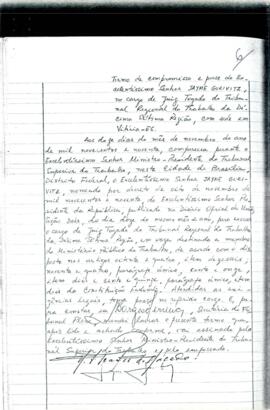 6
Termo de compromisso e posse do Ex-
celentíssimo Senhor JAYME
no cargo de Juiz Togado do Tribu-
nal Regional do Trabalho da Dé-
cima Sétima Região, com sede em
Vitória-ES.
Aos doze dias do mês de novembro do ano
de mil novecentos e noventa, compareceu perante o
Excelentíssimo Senhor Ministro-Presidente do Tribunal
Superior do Trabalho, nesta Cidade de Brasília,
Distrito Federal, o Excelentíssimo Senhor JAYME
nomeado por decreto de oito de novembro de
mil novecentos e noventa, do Excelentíssimo Senhor Pre-
sidente da República, publicado no Diário Oficial da
do dia do mesmo mês e ano, para exercer
o cargo de Juiz Togado do Tribunal Regional do Trabalho
da Décima Sétima Região, em vaga destinada a membro
do Ministério Público do Trabalho, de acordo com o dis-
posto nos artigos oitenta e quatro, item dezesseis,
noventa e quatro, parágrafo único, cento e onze,
e cento e quinze, parágrafo único,
da Constituição Federal. Atendidas as exi-
gências legais, tomou posse no referido cargo. E, pa-
ra constar, eu
lavrei o presente termo que,
após lido e achado conforme, vai assinado pelo
Excelentíssimo Senhor Ministro-Presidente do Tribunal
Superior do Trabalho e pelo empossado.